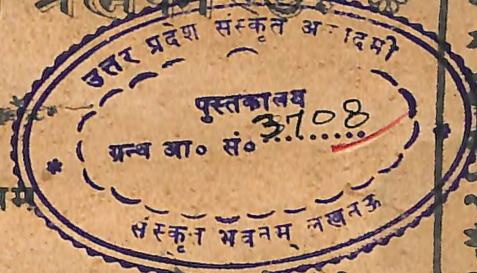 उत्तर प्रदेश संस्कृत अकादमी
पुस्तकालय
ग्रन्थ आ० सं० 3708
संस्कृत भवनम् लखनऊ